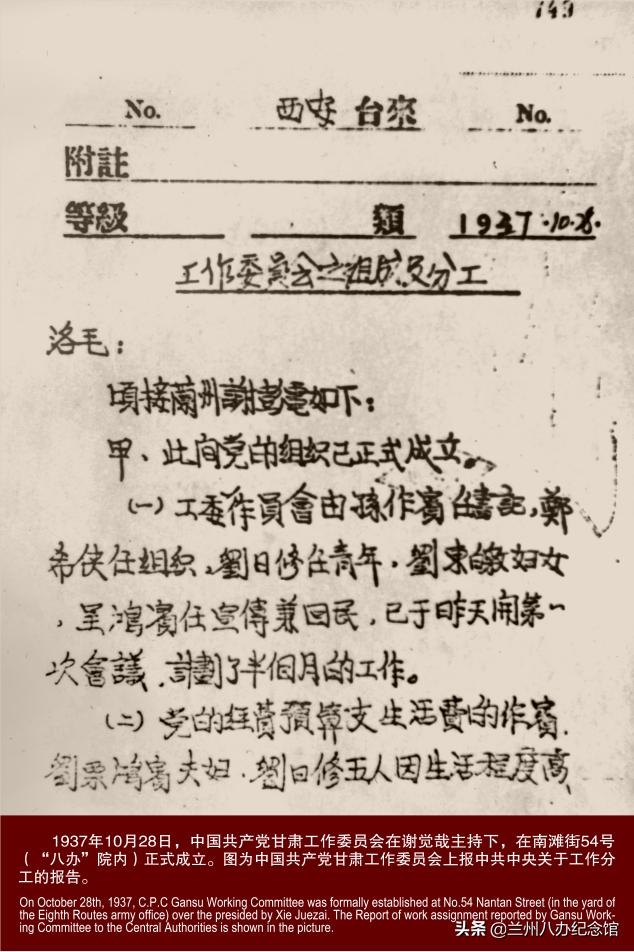 749
No. 西安 台來 No.
附註
等級 類 1937.10.28.
工作委員会之组成及分工
洛毛：
頃接蘭州謝彭電如下：
甲、此间党的组织已正式成立。
(一) 工委作員會由孫作賓任書記，鄭
希侠任组织、劉日修任青年，劉東 妇女
，吴鴻賓任宣傳兼回民，已于昨天開第一
次會議，計劃了半個月的工作。
(二) 党的经費預算支生活費的作賓、
劉 鴻賓夫妇、劉日修五人因生活程度高
1937年10月28日，中国共产党甘肃工作委员会在谢觉哉主持下，在南滩街54号
（“八办”院内）正式成立。图为中国共产党甘肃工作委员会上报中共中央关于工作分
工的报告。
On October 28th, 1937, C.P.C Gansu Working Committee was formally established at No.54 Nantan Street (in the yard of
the Eighth Routes army office) over the presided by Xie Juezai. The Report of work assignment reported by Gansu Work-
ing Committee to the Central Authorities is shown in the picture.
头条 @兰州八办纪念馆